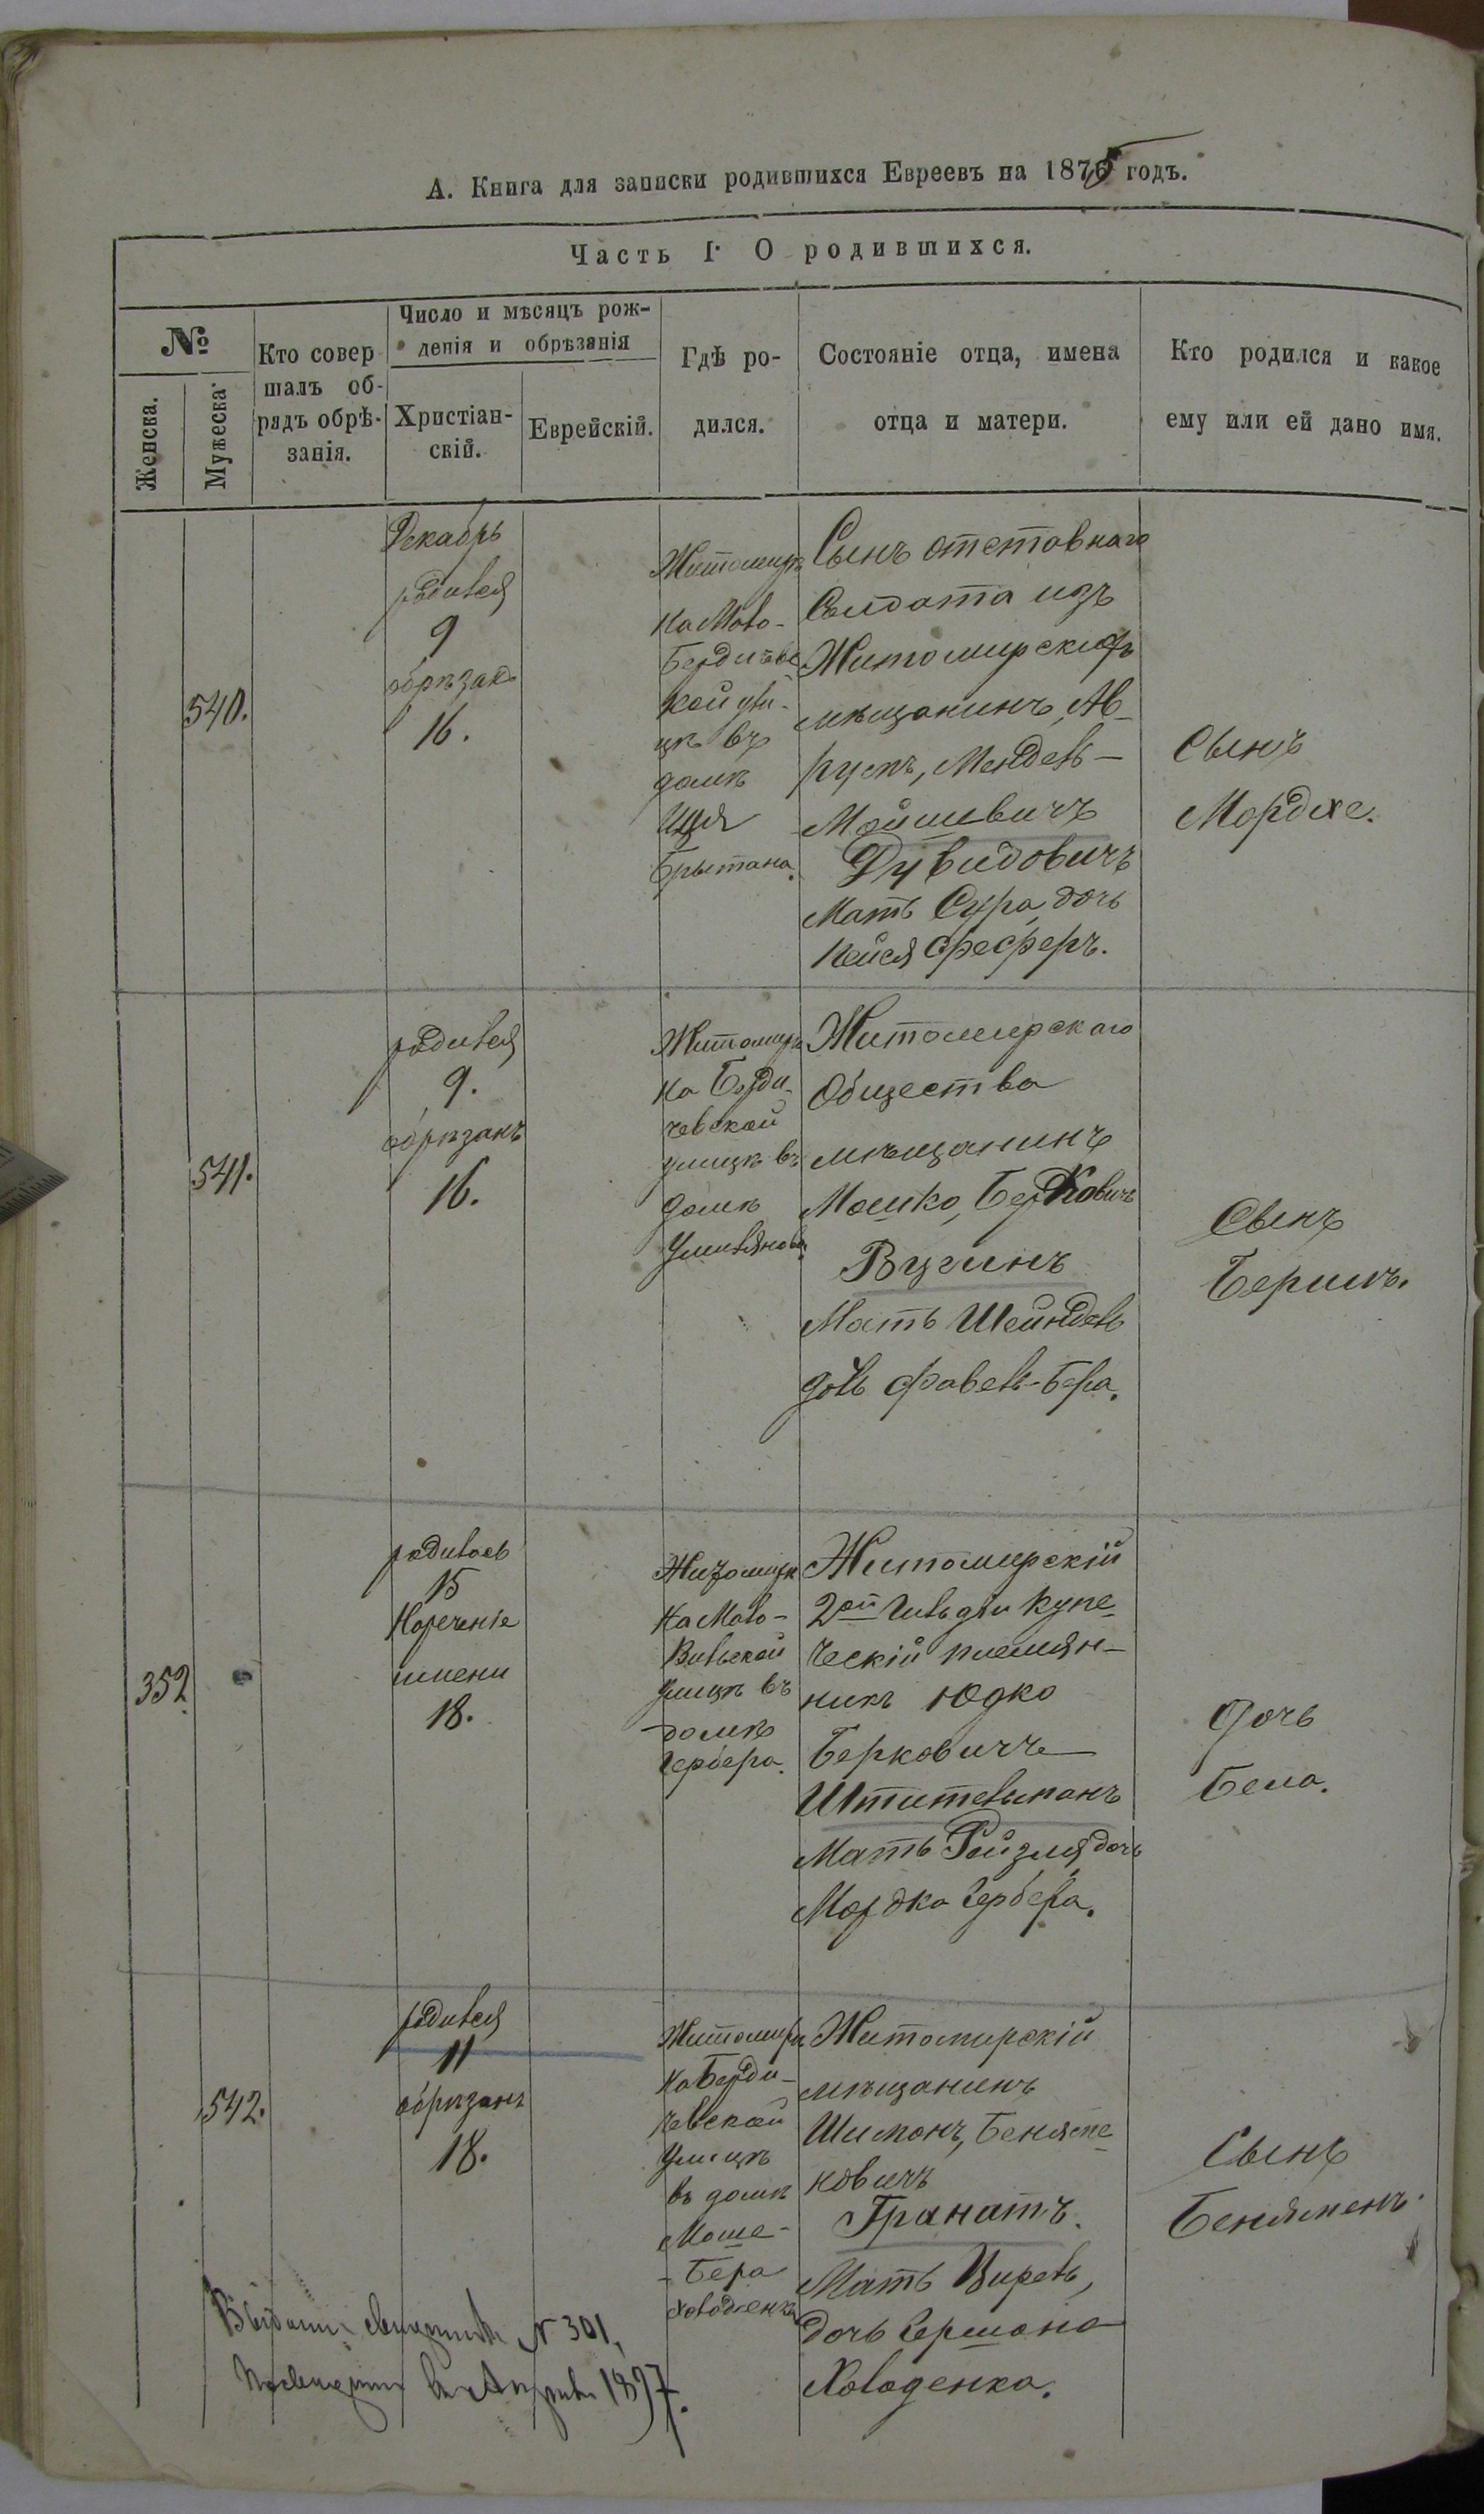 А. Книга для записки родившихся Евреевъ на 1875 годъ.
Часть I. О родившихся.
№
Женска.
Мужеска.
Кто совер
шалъ об-
рядъ обрѣ-
занія.
Число и мѣсяцъ рож-
денія и обрѣзанія
Христіан-
скій.
Еврейскій.
Гдѣ ро-
дился.
Состояніе отца, имена
отца и матери.
Кто родился и какое
ему или ей дано имя.
540.
Декабрь
родился
9
обрѣзанъ
16.
Житомирѣ
на Мало-
Бердичевс
кой ули-
цѣ въ
домѣ
Брытана.
Сынъ отставнаго
Солдата изъ
Житомирскихъ
мѣщанинъ, Ав-
румъ, Мендель-
Мошкевичъ
Дувидовичъ
Мать Сура, дочь
Пейся Фефферъ.
Сынъ
Мордхе.
541.
родился
9.
обрѣзанъ
16.
Житомирѣ
на Берди-
чевской
улицѣ въ
домѣ
Житомирскаго
Общества
мѣщанинъ
Мошко, Берковичъ
Мать Шейндель
дочь Фавель-Бера.
Сынъ
Беришъ.
352
родилась
15
Нареченіе
имени
18.
Житомирѣ
на Мало-
Вильской
улицѣ въ
домѣ
Гербера.
Житомирскій
2ой Гильдіи Купе-
ческій племян-
никъ Юдко
Берковичъ
Штительманъ
Мать Рейзля, дочь
Мордка Гербера.
Дочь
Бела.
542.
родился
11
обрѣзанъ
18.
Житомирѣ
на Берди-
чевской
улицѣ
въ домѣ
Моше-
-Бера
Холоденка
Житомирскій
мѣщанинъ
Шимонъ, Беняме-
новичъ
Гранатъ.
Мать Цирель,
дочь Гершона
Холоденка.
Сынъ
Беняменъ.
№ 301,
1897.